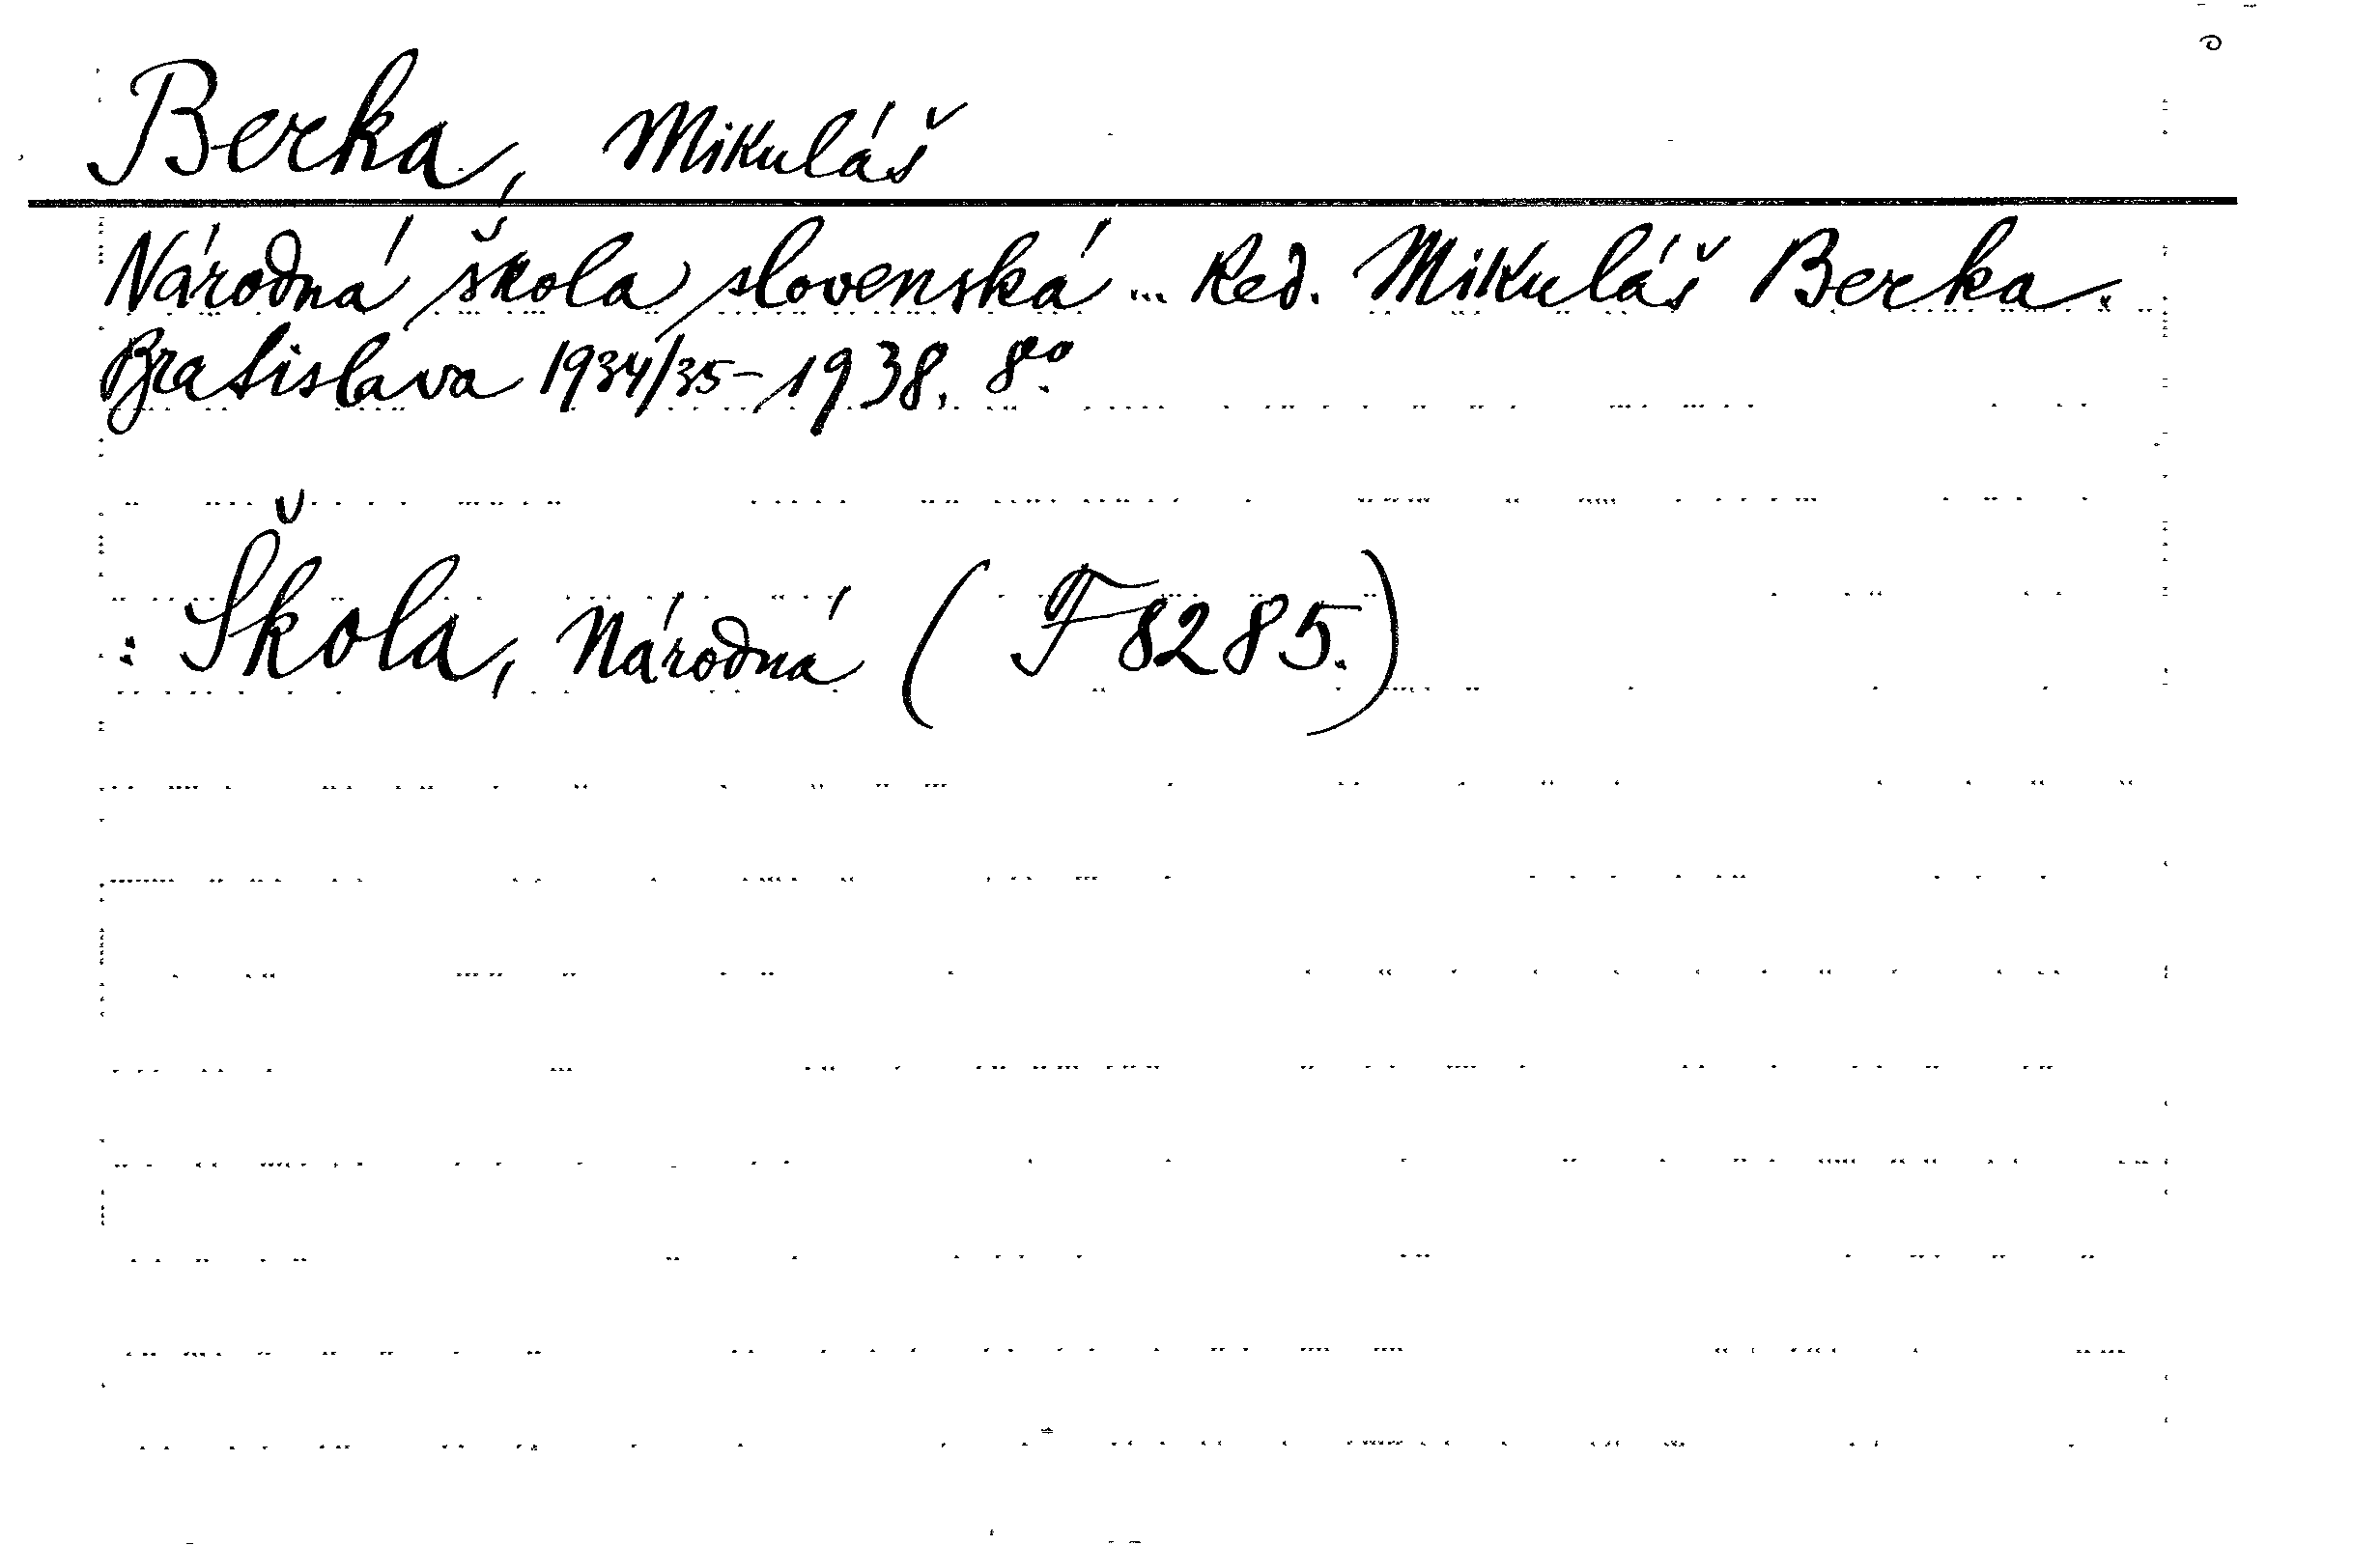 Berka, Mikuláš
Národná škola slovenská ... Red. Mikuláš Berka.
Bratislava 1934/35-1938. 8°.
: Škola, Národná (F 8285.)